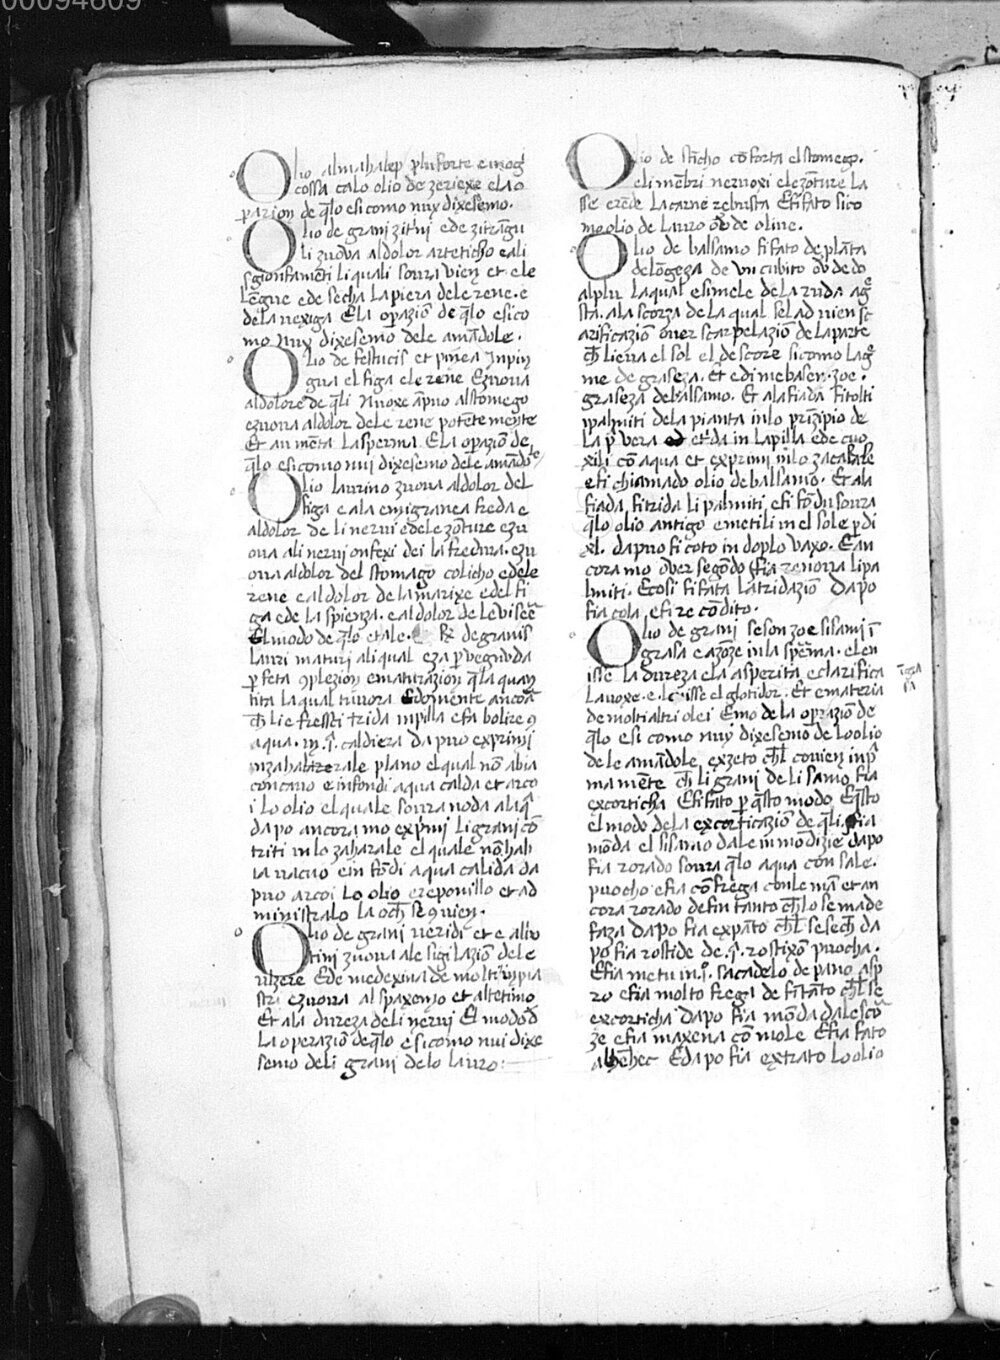 00094609
Olio almahalep pluforte e inogͥ
cossa calo olio de zeriexe ela o
paraion de q̃lo esicomo nuy dixesemo.
Olio de grani zitrinj ede zitrãgu
li zuova aldolor arteticho eali
sgionfamẽti li quali soura vien et ele
lẽgue ede secha la piera dele rene. e
dela vexiga Ela opazioñ de q̃lo esico
mo Nuy dixesemo dele amãdole.
Olio de festucis et pinea Inpin
gua el figa ele rene Ezuova
aldolore de q̃li Nuoxe apuo alstomego
ezuova aldolor dele rene potẽte mente
Et aumẽta la sperma. Ela opazioñ de
q̃lo esicomo nui dixesemo dele amãdole
Olio laurino zuova aldolor del
figa e ala emigranea freda e
aldolor de li nerui edele zõture ezu
oua ali neruj onfexi dei la fredura. ezu
oua aldolor del stomago colicho edele
rene e aldolor dela marixe edel fi
ga ede la spienza. e aldolor de le viseẽ
El modo de q̃lo etale. ℞ de granis
lauri maturi ali qual eza puegnuda
pfeta oplezion ematurazion q̃la quan
tita la qual tuuora Edomente ancoã
ch̃ li e fressci trida inpilla efa bolire 9
aqua. in .j̃. caldiera Dapuo exprimi
inzaharale plano el qual nõ abia
concauo e infondi aqua calda et arco
i lo olio el quale soura noda aliq̃
dapo ancora mo exp̃mi li grani cõ
triti in lo zaharale el quale nõ hab
ia vacuo e in fõdi aqua calida da
puo arcoi lo olio e repouillo et ad
ministralo la och̃ se 9uien.
Olio de grani ueridi et e albo
tini zuoua ale sigilazioñ dele
ulzere Ede medexina de molti inpia
stri ezuoua al spaxemo et altetimo
Et ala dureza deli neruj El modo d
La operazioñ de q̃lo e sicomo nui dixe
semo deli granj delo lauro:
Olio de sticho cõforta el stomego.
eli mẽbri neruoxi ele zõture la
sse erẽde la carne robusta Efi fato sico
mo olio de lauro ouer de oliue.
Olio de balsamo fi fato de plãta
de lõgeza de vn cubito ou de do
al plu la qual esimele dela ruda ag̃
sta. ala scorza de la qual selad uien sc
arificazioñ ouer scarpelazioñ de la parte
ch̃ lieua el sol el descore sicomo lag̃
me de graseza. Et e dime baser. zoe.
graseza de balsamo. Et ala fiada fi tolti
i palmiti dela pianta in lo prinzipio de
la p̃ uera et da in la pilla e de cuo
xili cõ aqua et exprimi in lo zacarale
e fi chiamado olio de balsamo. Et ala
fiada fi trida li palmiti e fi fõdu soura
q̃lo olio antigo e metili in el sole p di
xl. dapuo fi coto in doplo vaxo. E an
cora mo ouer segõdo fia renoua li pa
lmiti. Ecosi fi fata la tridazioñ Dapo
fia cola e fi recõdito.
Olio de grani seson zoe sisami ĩ
grasa e azõze in la spẽma. elen
isse la dureza ela asperita e clarifica
La uoxe. e lenisse el glotidor. Et e materia
de molti altri olei Emo de la opazioñ de
q̃lo esi como nuy dixesemo de lo olio
dele amãdole exzeto ch̃l conuien in p̃
mamẽte ch̃ li grani de lisamo fia
excorticha Efi fato p q̃sto modo Eq̃sto
el modo dela excorticazioñ de q̃li. fia
mõda el sisamo dale immõdizie Dapo
fia rorado soura q̃lo aqua con sale.
puocho efia cõfrega conle mã et an
cora rorado defin tanto ch̃lo se made
faza Dapo fia expãto ch̃l se sech̃ da
po fia rostide de .j̃. rostixoñ puocha.
Efia metu in .j̃. sacadelo de pano asp
ro efia molto frega de fitãto ch̃l se
excorticha Dapo fia mõda dalescor
ze efia maxena cõ mole Efia fato
alkẽhec Edapo fia extrato lo olio